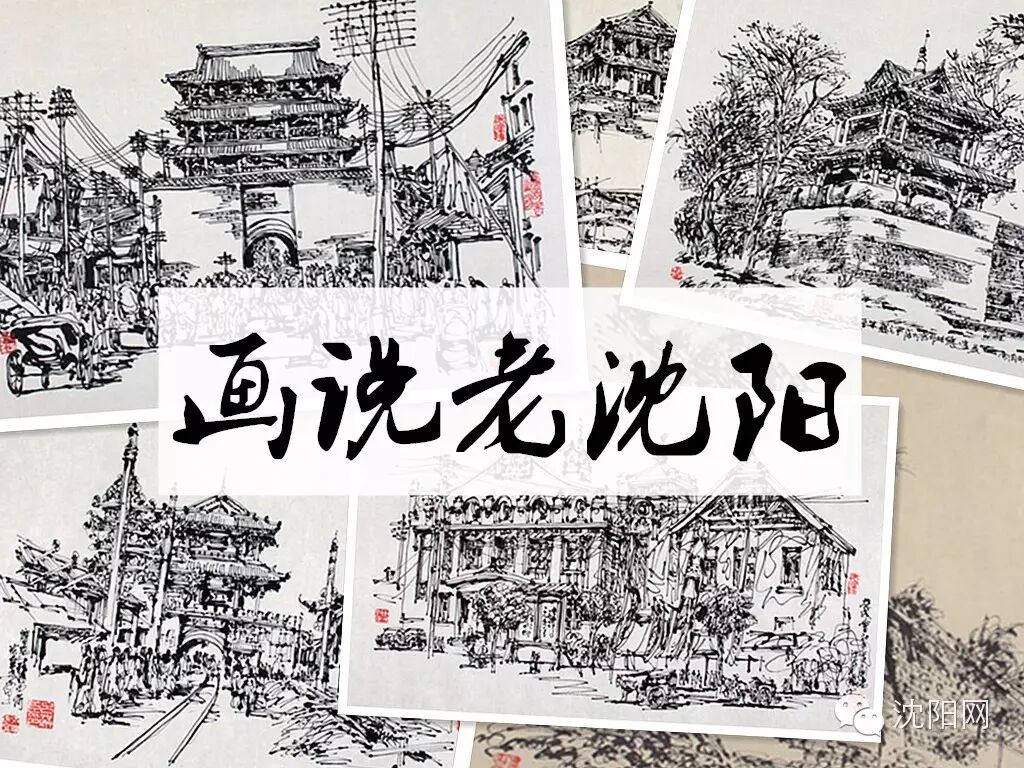 画说老沈阳
沈阳网